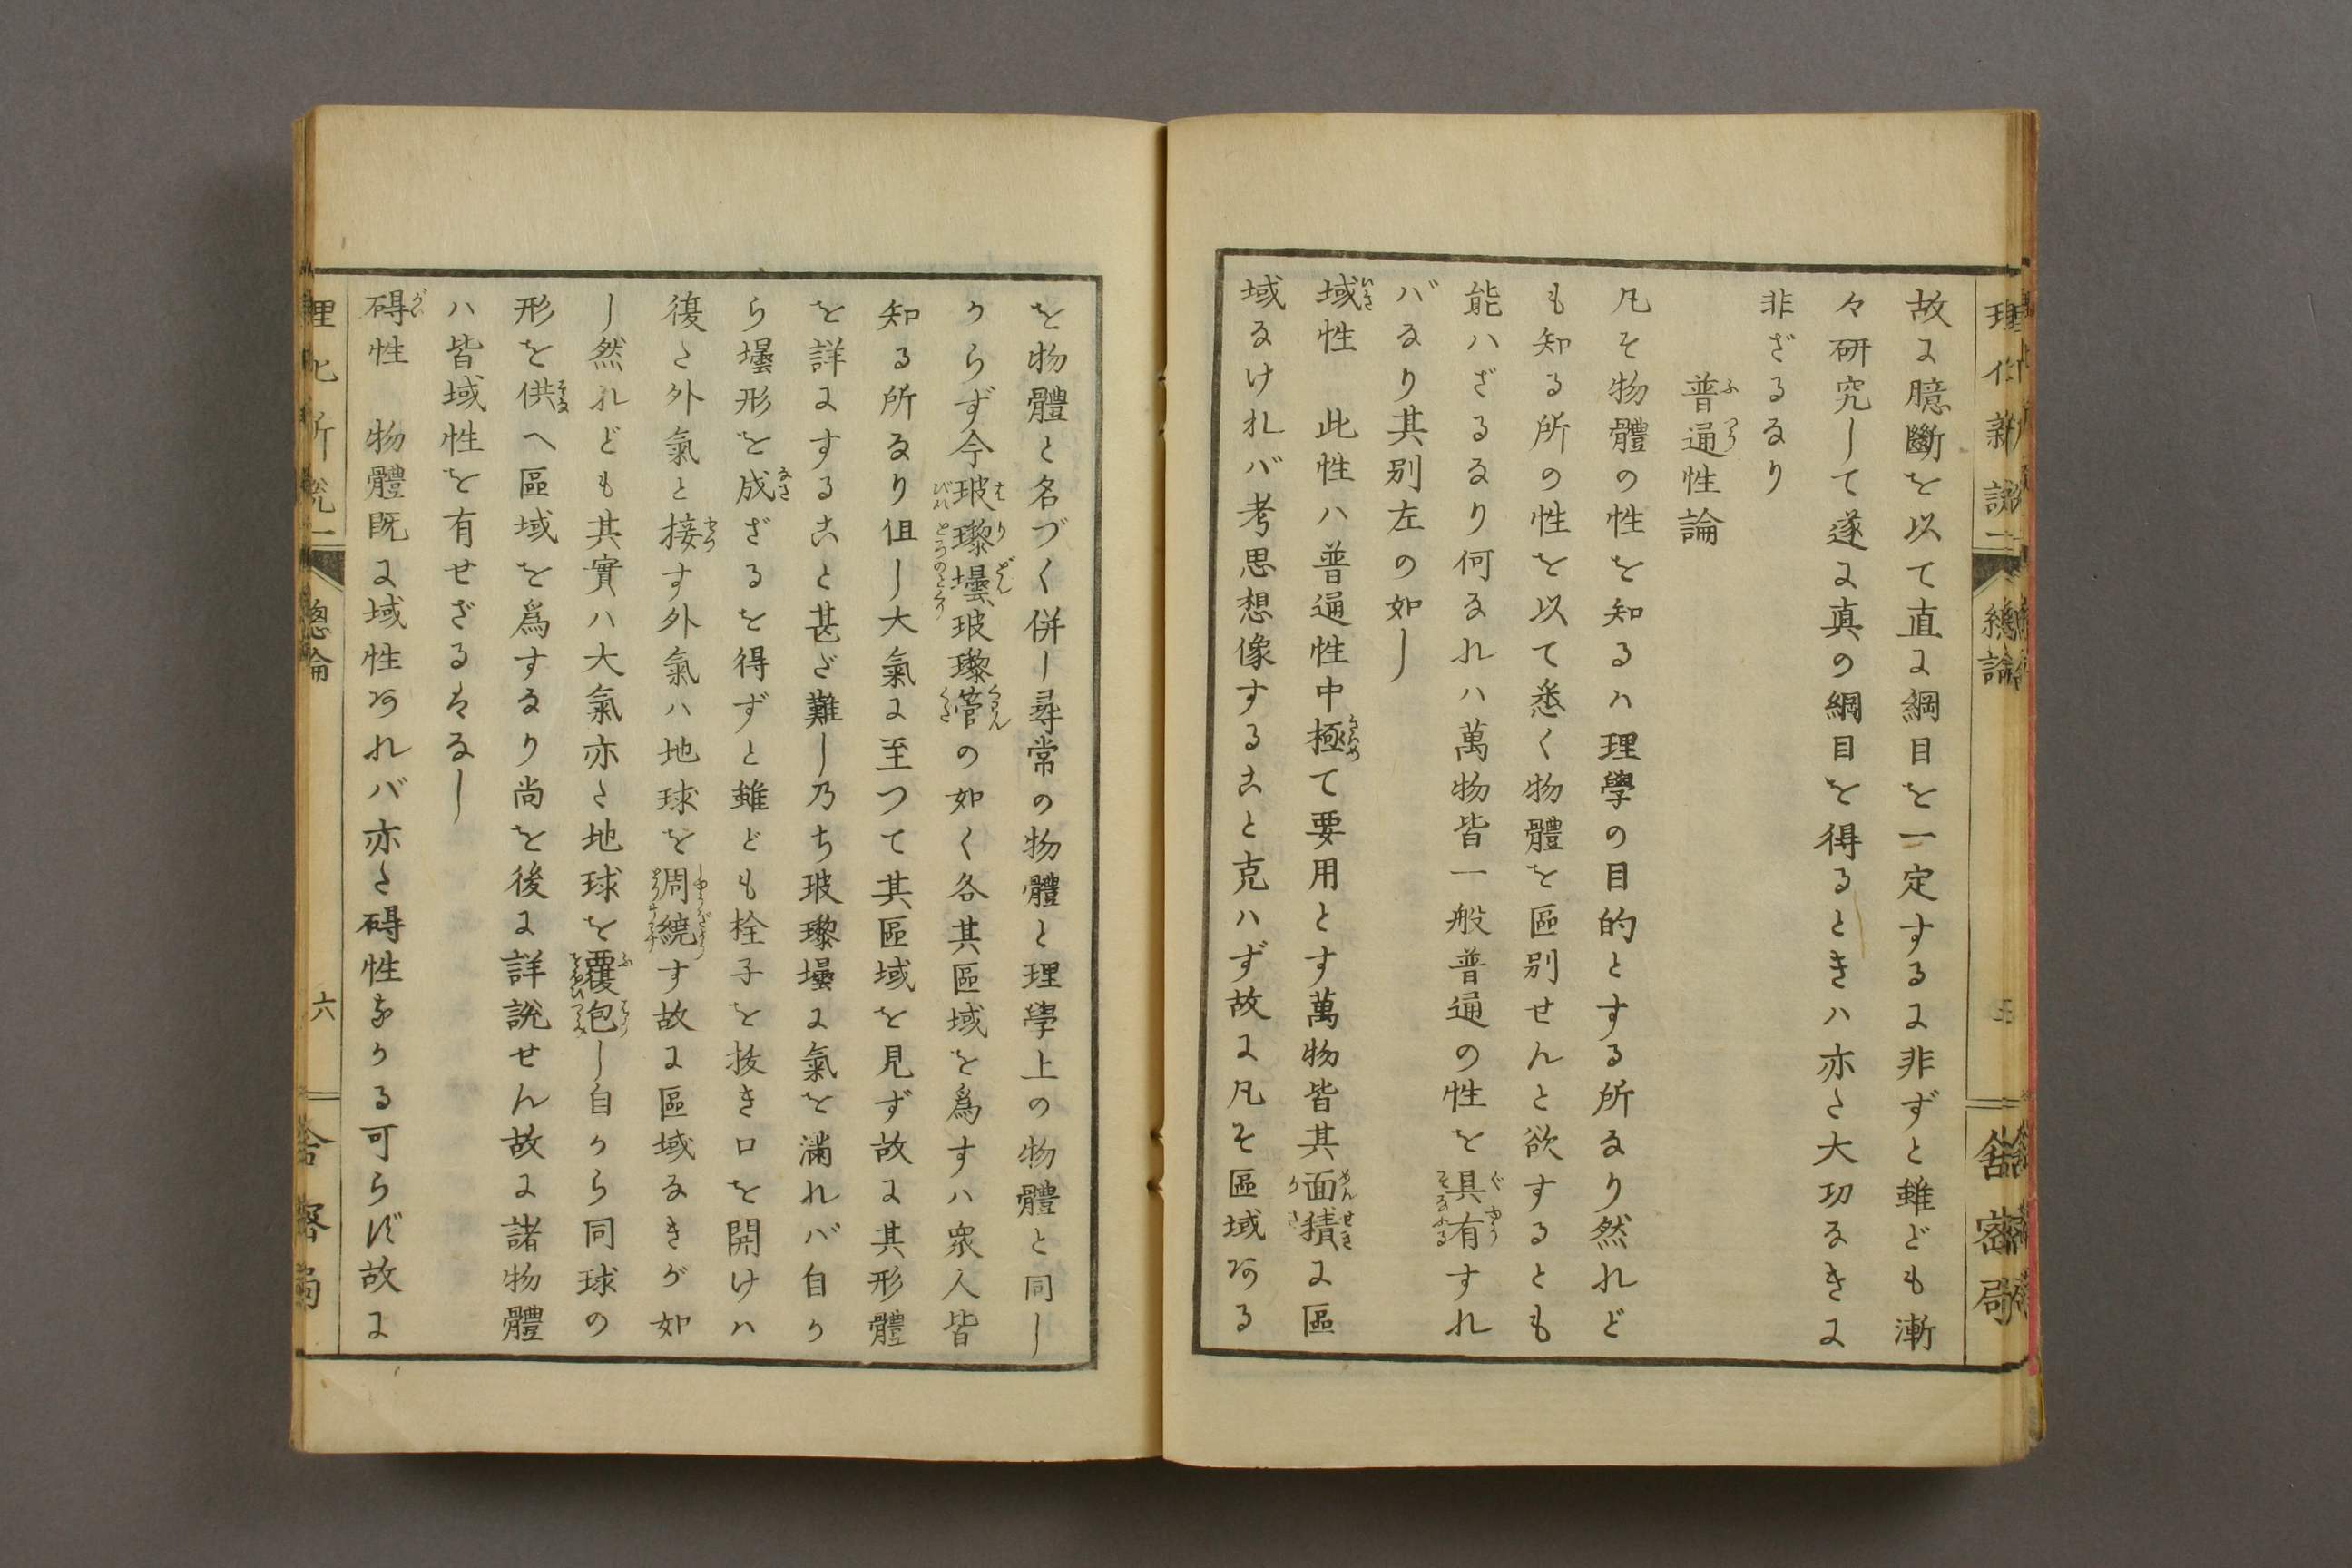 理化新説一 總論 五 舎密局
故に臆斷を以て直に綱目を一定するに非ずと雖ども漸
々研究して遂に真の綱目を得るときハ亦た大功なきに
非ざるなり
普通性論
凡そ物體の性を知るハ理學の目的とする所なり然れど
も知る所の性を以て悉く物體を區別せんと欲するとも
能ハざるなり何なれハ萬物皆一般普通の性を具有すれ
バなり其別左の如し
域性 此性ハ普通性中極て要用とす萬物皆其面積に區
域なけれバ考思想像すること克ハず故に凡そ區域ある
を物體と名づく併し尋常の物體と理學上の物體と同し
からず今玻瓈壜玻瓈管の如く各其區域を爲すハ衆人皆
知る所なり但し大氣に至つて其區域を見ず故に其形體
を詳にすること甚ざ難し乃ち玻瓈壜に氣を滿れバ自か
ら壜形を成ざるを得ずと雖ども栓子を抜き口を開けハ
復た外氣と接す外氣ハ地球を周繞す故に區域なきが如
し然れども其實ハ大氣亦た地球を覆包し自から同球の
形を供へ區域を爲すなり尚を後に詳説せん故に諸物體
ハ皆域性を有せざるはなし
碍性 物體既に域性あれバ亦た碍性なかる可らず故に
理化新説一 總論 六 舎密局